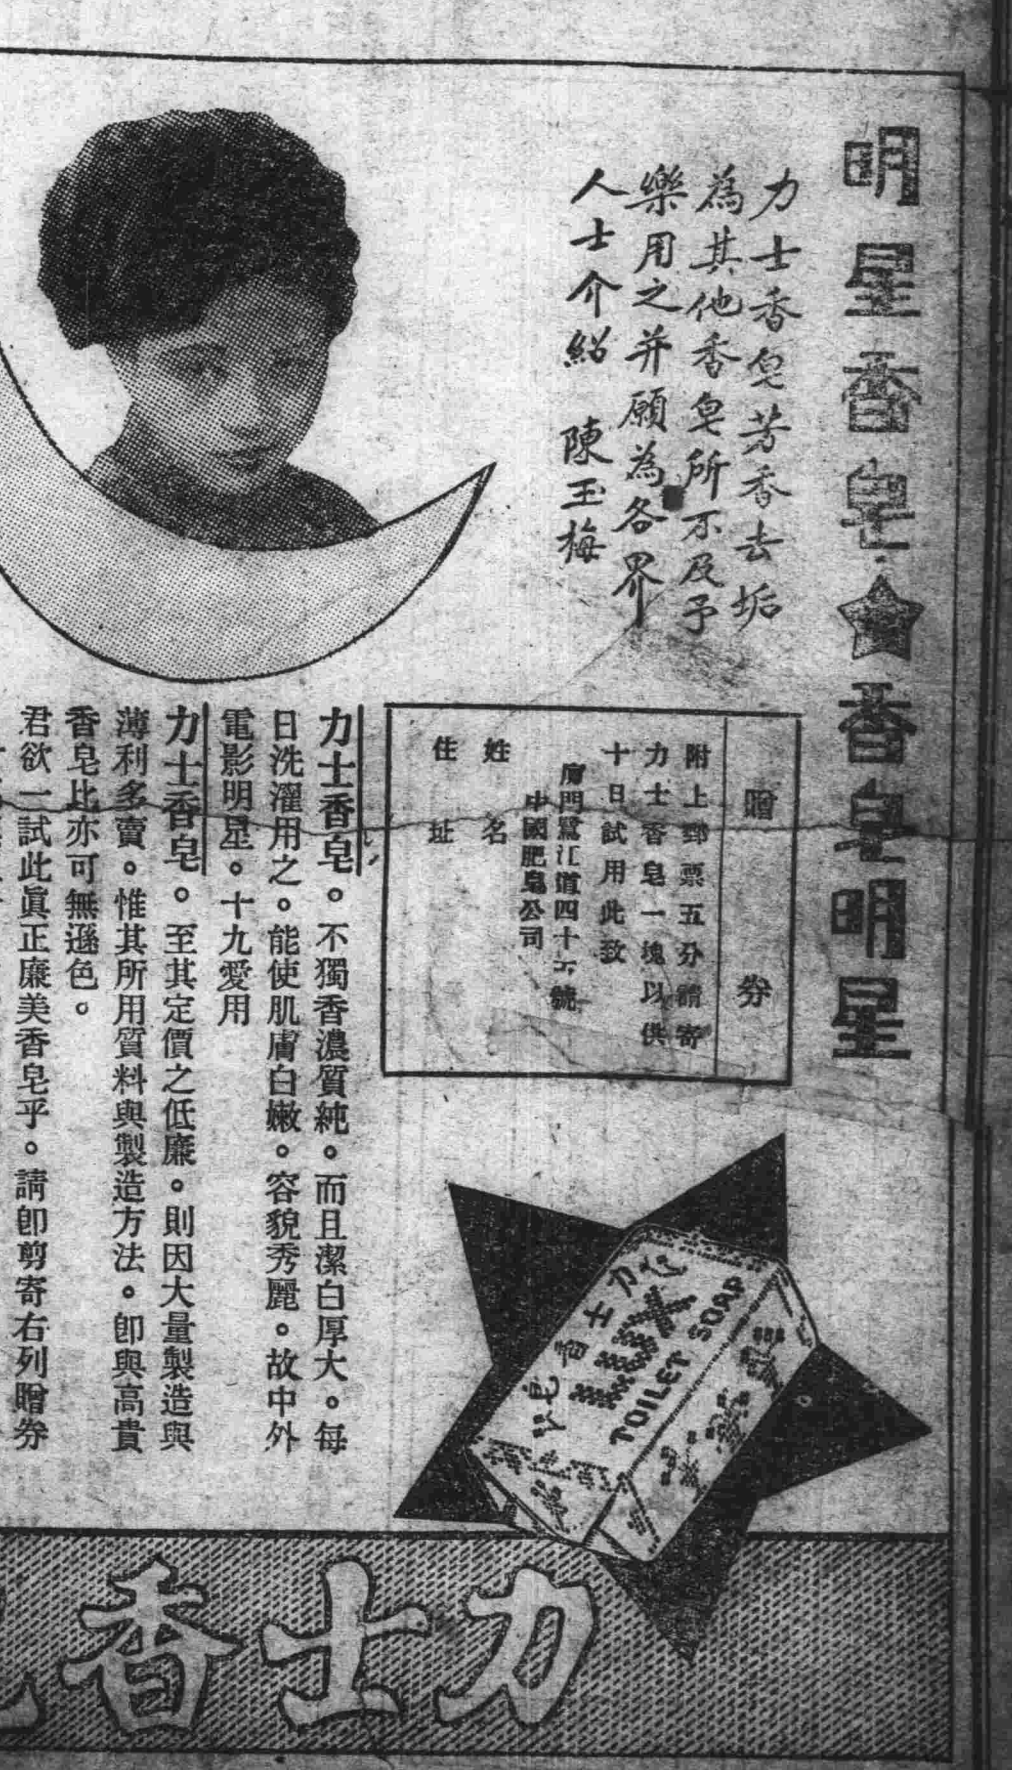 明星香皂★香皂明星
力士香皂芳香去垢
為其他香皂所不及予
樂用之并願為各界
人士介紹　陳玉梅
贈券
附上郵票五分請寄
力士香皂一塊以供
十日試用此致
廈門鷺江道四十六號
中國肥皂公司
姓名
住址
力士香皂。不獨香濃質純。而且潔白厚大。每
日洗濯用之。能使肌膚白嫩。容貌秀麗。故中外
電影明星。十九愛用
力士香皂。至其定價之低廉。則因大量製造與
薄利多賣。惟其所用質料與製造方法。卽與高貴
香皂比亦可無遜色。
君欲一試此眞正廉美香皂乎。請卽剪寄右列贈券
力士香皂
LUX
TOILET SOAP
力士香